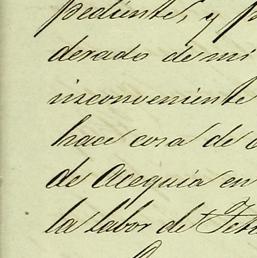 pediente, y
derado de mi
inconveniente
hace cosa de
de Acequia en
la labor de